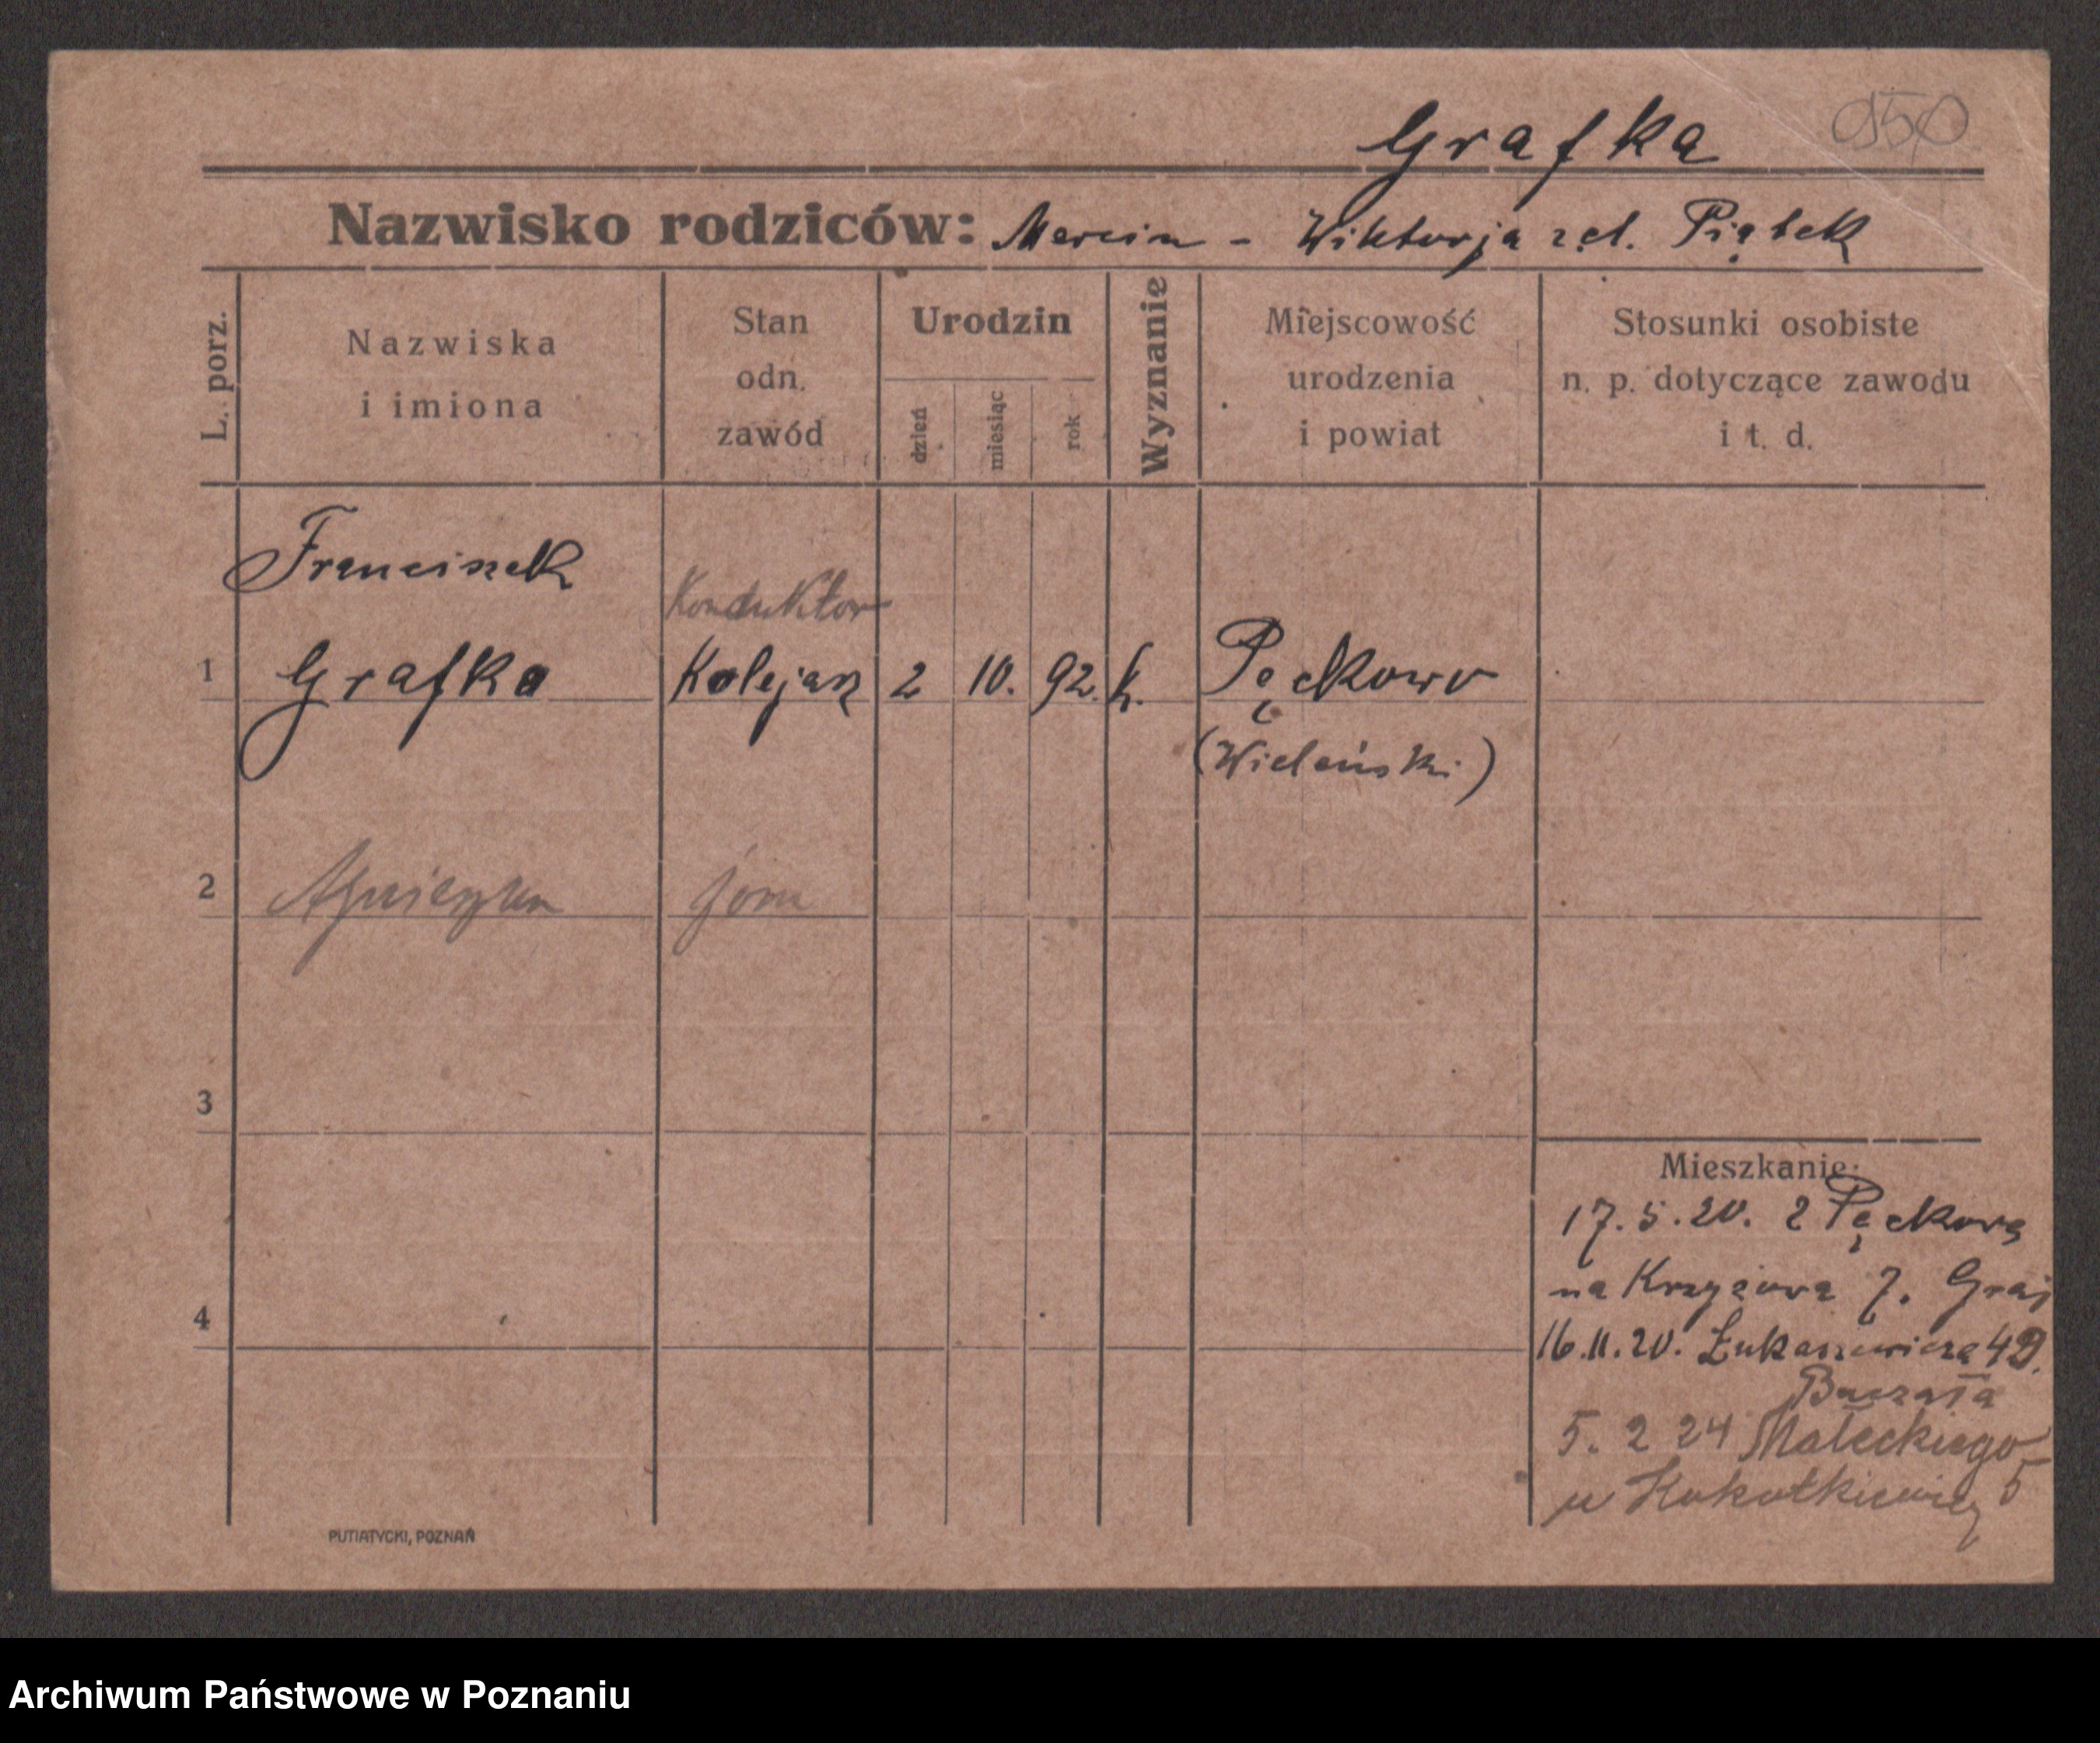 Grafka 950
Nazwisko rodziców: Marcin - Wiktorja zd. Piątek
L. porz.
Nazwiska
i imiona
Stan
odn.
zawód
Urodzin
dzień
miesiąc
rok
Wyznanie
Miejscowość
urodzenia
i powiat
Stosunki osobiste
n. p. dotyczące zawodu
i t. d.
Franciszek
Konduktor
1 Grafka Kolejarz 2 10. 92. k. Pęckowo
(Wieleński)
2 Agnieszka żona
3
Mieszkanie:
17.5.20. z Pęckowa
na Krzyżowa 7. Graj
4
16.11.20. Łukaszewicza 49.
5. 2 24 Małeckiego
5
PUTIATYCKI, POZNAŃ
Archiwum Państwowe w Poznaniu